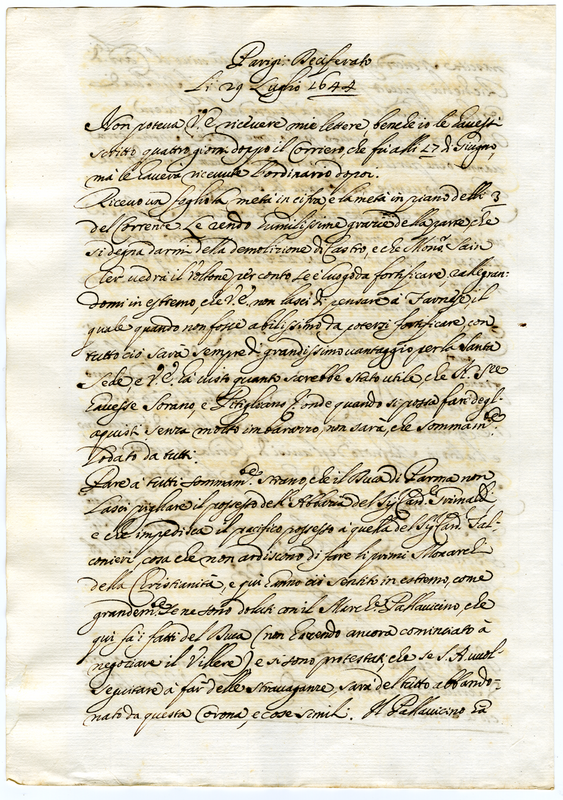 Parigi. Deciferato
Li 29 Luglio 1644
Non poteva V. E. ricevere mie lettere benche io le havessi
scritto quattro giorni doppo il Corriero che fu alli 17 di Giugno,
ma le haverà ricevute l'ordinario dopoi.
Ricevo un foglio la metà in cifra e la metà in piano delli 3
del Corrente. Le rendo humilissime grazie della parte che
si degna darmi della demolizione di Castro, e che Mons.
vedrà il Voltone per conto se è luogo da fortificare, rallegran-
domi in estremo, che V. E. non lasci di pensare à Farnese il
quale quando non fosse abilissimo da potersi fortificare con
tutto ciò sarà sempre di grandissimo vantaggio per la Santa
Sede, e V. E. ha visto quanto sarebbe stato utile, che N. Sre
havesse Sorano, e Pitigliano, onde quando si possa fare degl'
aquisti senza molto imbarazzo, non sarà, che sommam.te
lodato da tutti.
Pare a tutti sommam.te strano, che il Duca di Parma non
lasci pigliare il possesso dell'Abbadia del Sig. Card. Grimaldi
e che impedisca il pacifico possesso à quella del Sig. Card. Fal-
conieri cosa che non ardiscono di fare li primi Monarchi
della Christianità, e qui hanno ciò sentito in estremo, come
grandem.te se ne sono doluti con il March.e Pallavicino, che
qui fà i fatti del Duca (non havendo ancora cominciato à
negotiare il Villere) e si sono protestati che se S. A. vuol
seguitare à far delle stravaganze, sarà del tutto abbando-
nato da questa Corona, e cose simili. Il Pallavicino hà